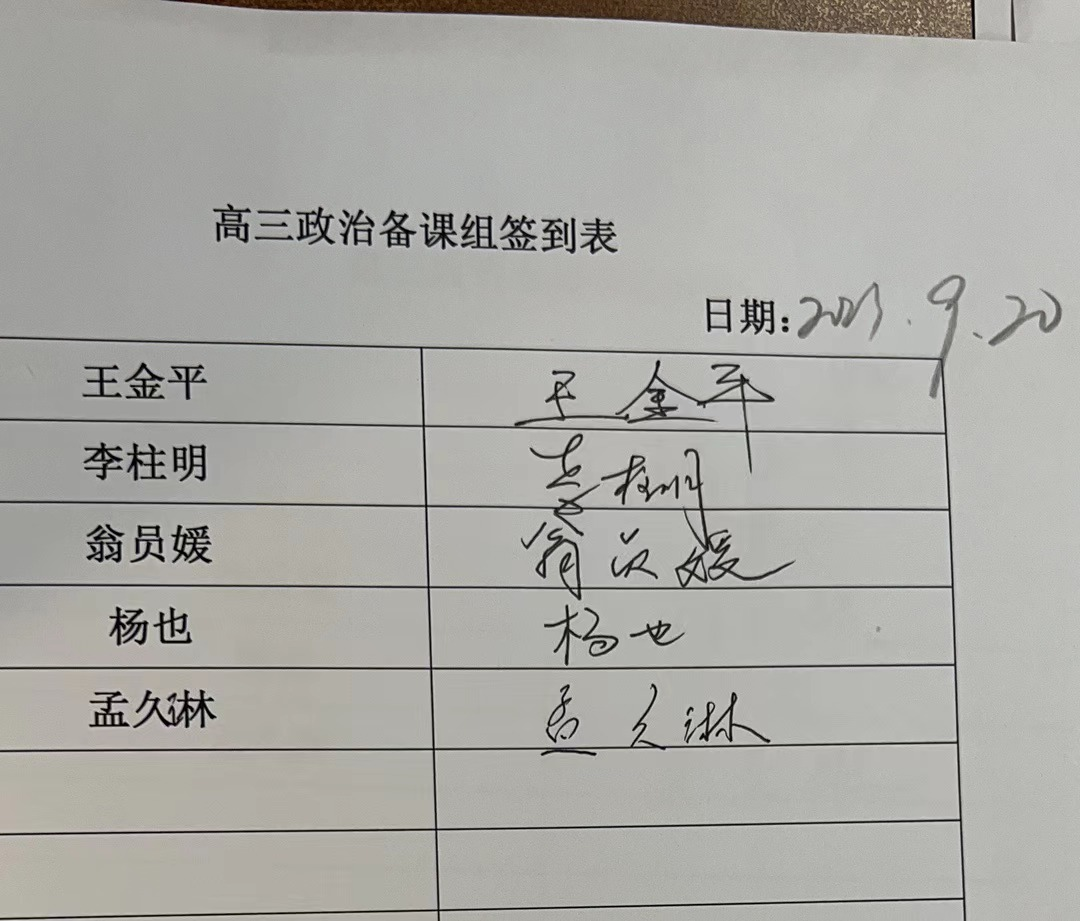 高三政治备课组签到表
日期:2023.9.20
王金平 王金平
李柱明 李柱明
翁员媛 翁员媛
杨也 杨也
孟久淋 孟久淋